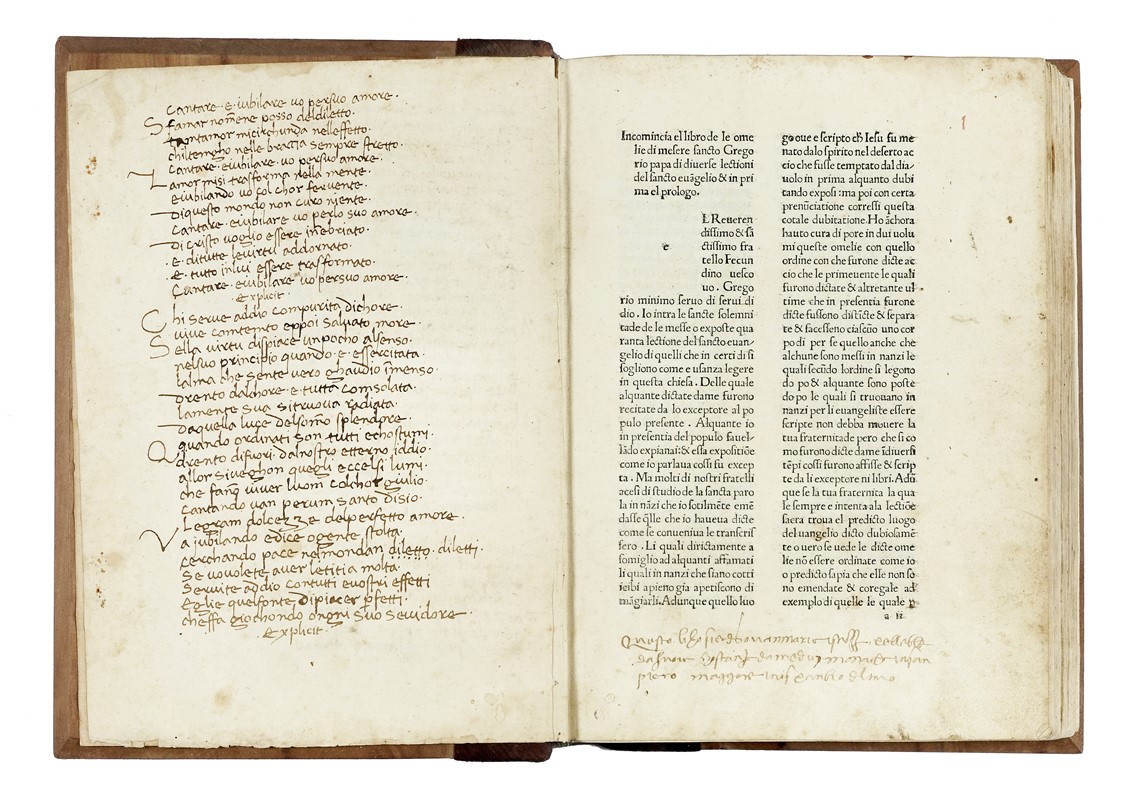 Cantare · e · iubilare vo persuo amore ·
S famar nomene posso deldiletto ·
tantamor micirchunda nelleffetto ·
chiltemgho nelle braccia sempre stretto ·
Cantare · eiubilare · vo persuo amore ·
L amor misi trasforma nella mente ·
eiubilando vo col chor fervente ·
Diquesto mondo non curo niente ·
Cantare · eiubilare vo perlo suo amore ·
Di cristo voglio essere inebriato ·
· E · ditutte levirtu addornato ·
· E · tutto inlui essere trasformato ·
Cantare · eiubilare vo persuo amore ·
· Explicit ·
C hi serve addio compurita dichore ·
vive contento eppoi salvato more ·
S ella virtu dispiace unpocho alsenso ·
nelsuo principio quando · e · essercitata ·
lalma che sente vero ghaudio imenso ·
Drento dalchore · e tutta comsolata ·
lamente sua sitruova radiata ·
Daquella luce delsomo splendore ·
Q quando ordinati son tutti echostumi ·
drento difuori dalnostro etterno iddio ·
allor siveghon quegli eccelsi lumi ·
che fano viver luom colchor giulio ·
Cantando van perun santo disio ·
Legram dolcezze delperfetto amore ·
V a jubilando edice ogente stolta ·
cerchando pace nelmondan diletto · diletti ·
Se vovolete aver letitia molta ·
Servite addio contutti evostri effetti
Eglie quelfonte dipiacer pfetti ·
cheffa giochondo ongni suo Servidore
· Explicit ·
Incomincia el libro de le ome
lie di mesere sancto Grego
rio papa di diuerse lectioni
del sancto euāgelio & in pri
ma el prologo.
L Reueren
dissimo & sā
e ctissimo fra
tello Fecun
dino uesco
uo . Grego
rio minimo seruo di serui di
dio . Io intra le sancte solemni
tade de le messe o exposte qua
ranta lectione del sancto euan-
gelio di quelli che in certi di si
sogliono come e usanza legere
in questa chiesa . Delle quale
alquante dictate dame furono
recitate da lo exceptore al po
pulo presente . Alquante io
in presentia del populo fauel-
lādo expianai: & essa expositiōe
come io parlaua cossi fu excep
ta . Ma molti di nostri fratelli
acesi di studio de la sancta paro
la in nāzi che io sotilmēte emē
dasse q̄lle che io haueua dicte
come se conueniua le transcris
sero . Li quali dirictamente a
somiglio ad alquanti affamati
li quali in nanzi che siano cotti
icibi apieno gia apetiscono di
māgiarli. Adunque quello luo
go oue e scripto ch̄ Iesu fu me
nato dalo spirito nel deserto ac
cio che fusse temptato dal dia-
uolo in prima alquanto dubi
tando exposi : ma poi con certa
prenūciatione corressi questa
cotale dubitatione. Ho āchora
hauto cura di pore in dui uolu
mi queste omelie con quello
ordine con che furone dicte ac
cio che le primeuente le quali
furono dictate & altretante ul-
time che in presentia furone
dicte fusseno distīcte & sepata
te & facesseno ciascūo uno cor
po di per se quello anche chè
alchune sono messi in nanzi le
quali secūdo lordine si legono
do po & alquante sono poste
do po le quali si truouano in
nanzi per li euangeliste essere
scripte non debba mouere la
tua fraternitade pero che si co
mo furono dicte dame īdiuersi
tēpi cossi furono affisse & scrip
te da li exceptore ni libri. Adū
que se la tua fraternita la qua
le sempre e intenta ala lectiōe
sacra troua el predicto luogo
del uangelio dicto dubiosamē-
te o uero se uede le dicte ome
lie nō essere ordinate come io
o predicto sapia che elle non so
no emendate & coregate ad
exemplo di quelle le quale p
a ii
Questo libro sie
piero maggiore